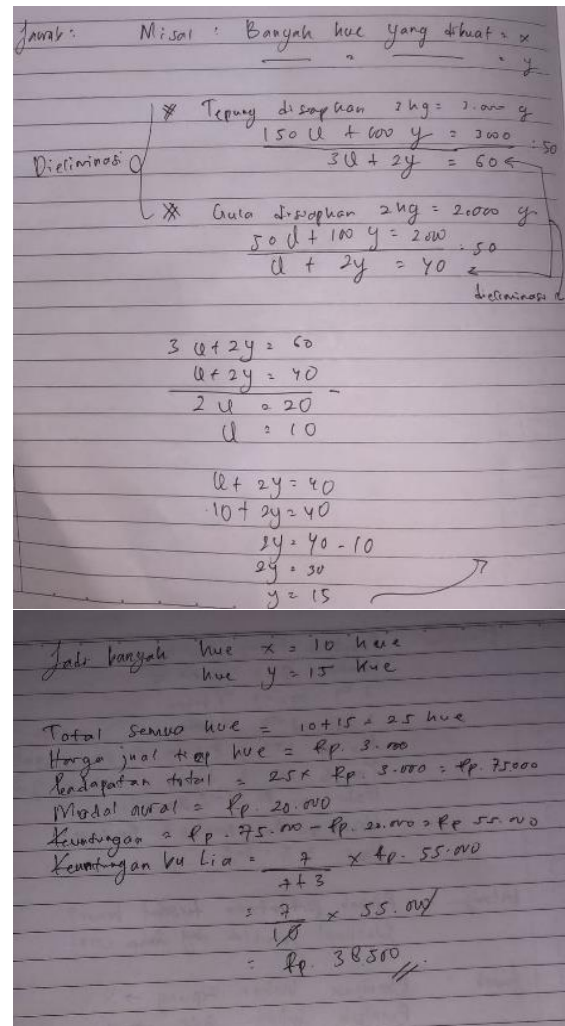 Jawab : Misal : Banyak kue yang dibuat = x
— " — " y
* Tepung disiapkan 3 kg = 3.000 g
150 x + 100 y = 3000 : 50
Dieliminasi 3x + 2y = 60
* Gula disiapkan 2 kg = 2.000 g
50 x + 100 y = 2000 : 50
x + 2y = 40
dieliminasi
3 x + 2y = 60
x + 2y = 40
2 x = 20 -
x = 10
x + 2y = 40
10 + 2y = 40
2y = 40 - 10
2y = 30
y = 15
Jadi banyak kue x = 10 kue
kue y = 15 kue
Total semua kue = 10 + 15 = 25 kue
Harga jual tiap kue = Rp. 3.000
Pendapatan total = 25 x Rp. 3.000 = Rp. 75000
Modal awal = Rp. 20.000
Keuntungan = Rp. 75.000 - Rp. 20.000 = Rp 55.000
Keuntungan bu Lia = 7 x Rp. 55.000
7 + 3
= 7 x 55.000
10
= Rp. 38500 //